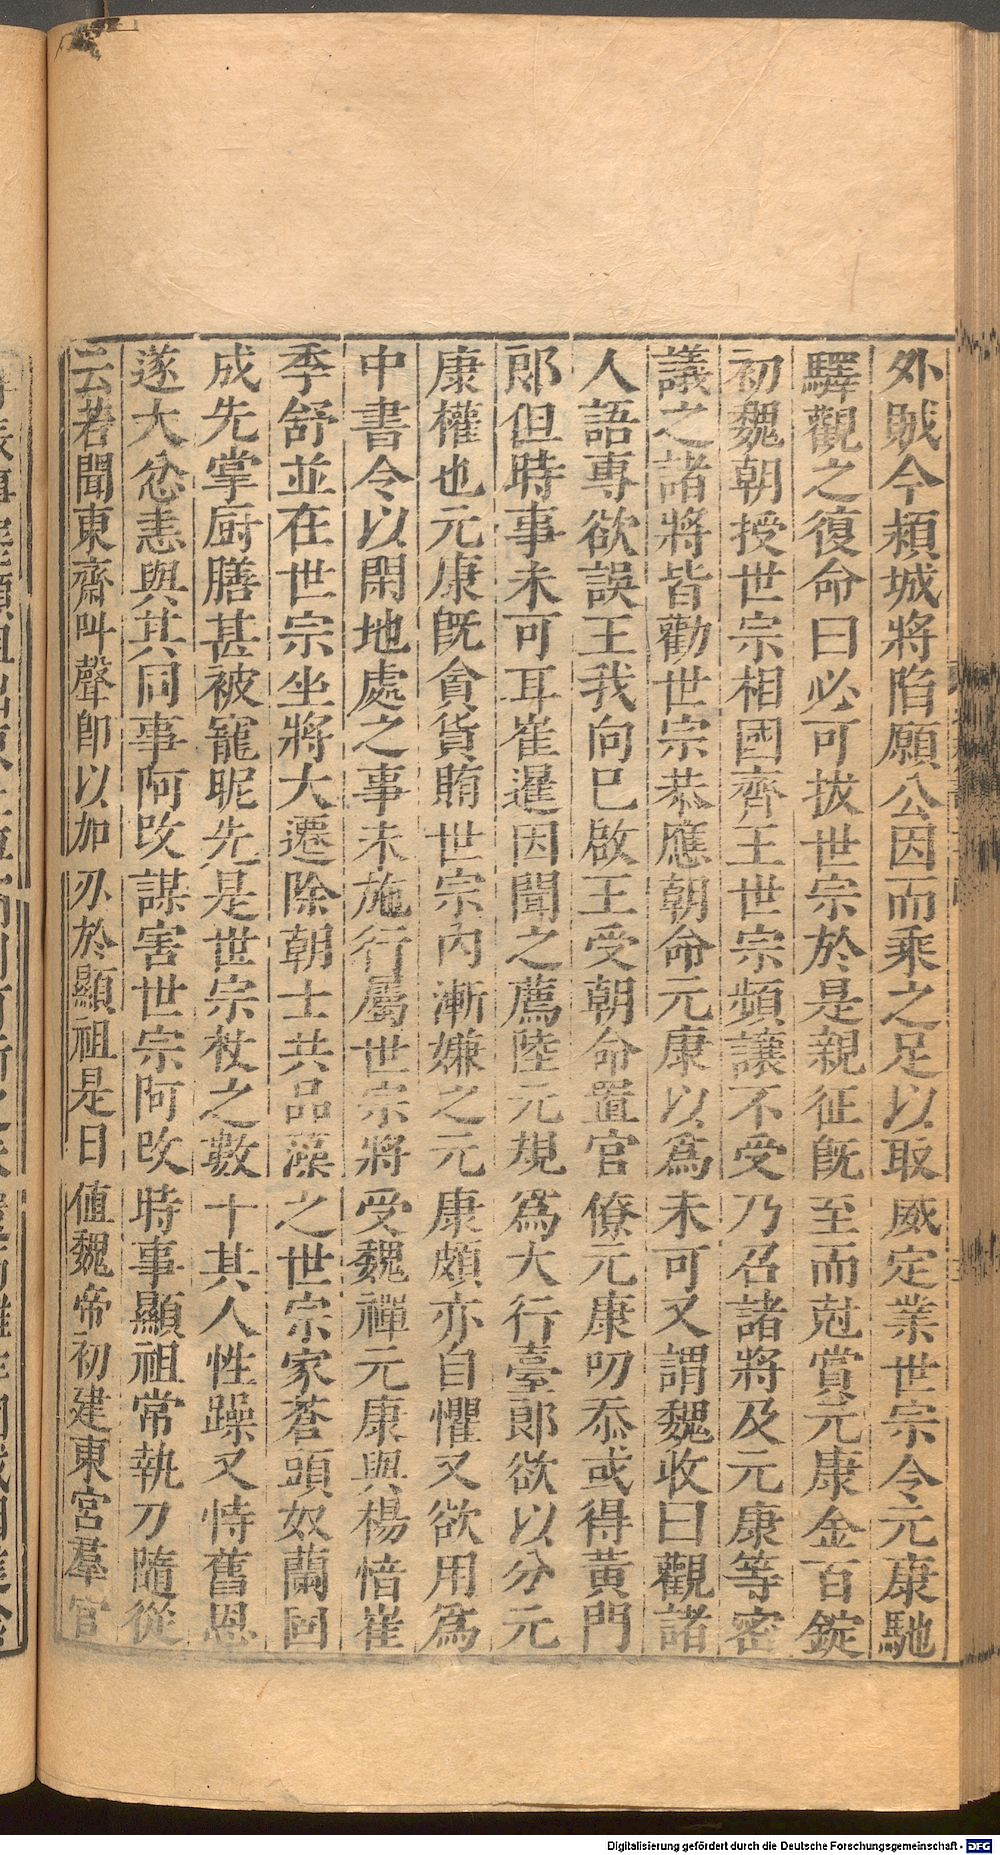 外賊今頴城將陷願公因而乘之足以取威定業世宗令元康馳
驛觀之復命曰必可拔世宗於是親征旣至而尅賞元康金百錠
初魏朝授世宗相國齊王世宗頻讓不受乃召諸將及元康等密
議之諸將皆勸世宗恭應朝命元康以爲未可又謂魏收曰觀諸
人語專欲誤王我向巳啟王受朝命置官僚元康叨忝或得黃門
郎但時事未可耳崔暹因聞之薦陸元規爲大行臺郎欲以分元
康權也元康旣貪貨賄世宗內漸嫌之元康頗亦自懼又欲用爲
中書令以閑地處之事未施行屬世宗將受魏禪元康與楊愔崔
季舒並在世宗坐將大遷除朝士共品藻之世宗家蒼頭奴蘭固
成先掌厨膳甚被寵昵先是世宗杖之數十其人性躁又恃舊恩
遂大忿恚與其同事阿改謀害世宗阿改時事顯祖常執刀隨從
云若聞東齋叫聲即以加刃於顯祖是日值魏帝初建東宮羣官
Digitalisierung gefördert durch die Deutsche Forschungsgemeinschaft - DFG